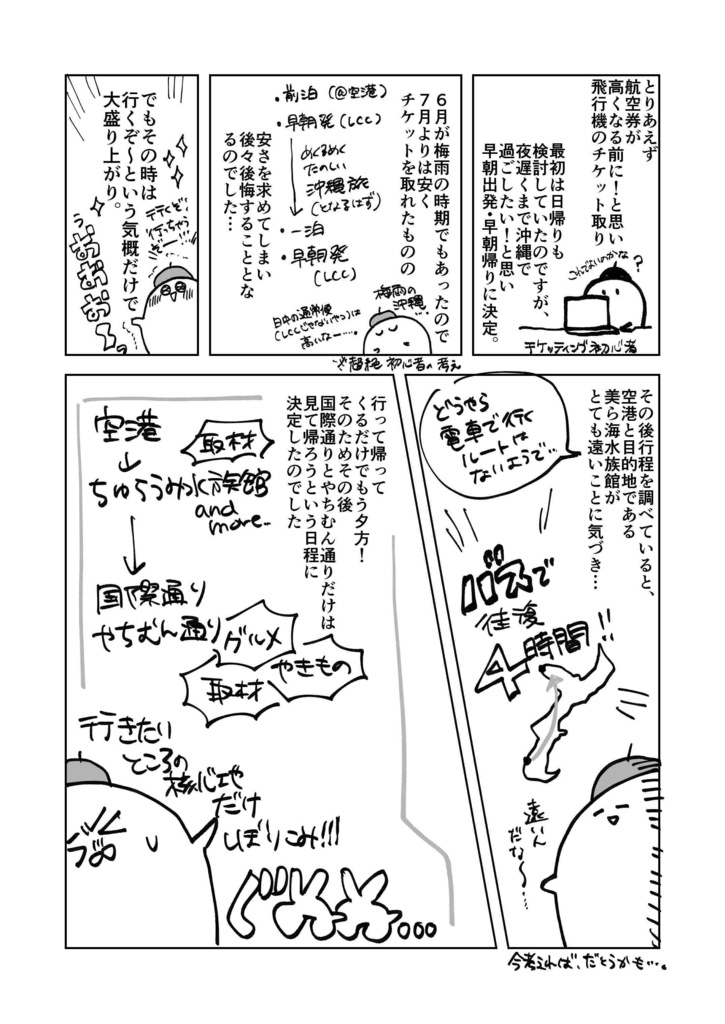 とりあえず
航空券が
高くなる前に!と思い
飛行機のチケット取り
最初は日帰りも
検討していたのですが、
夜遅くまで沖縄で
過ごしたい!と思い
早朝出発・早朝帰りに決定。
これでないのかな?
チケッティング初心者
6月が梅雨の時期でもあったので
7月よりは安く
チケットを取れたものの
・前泊(@空港)
・早朝発(LCC)
めくるめく
たのしい
沖縄旅
(となるはず)
・一泊
・早朝発
(LCC)
安さを求めてしまい
後々後悔することとな
るのでした…
梅雨の
沖縄
日中の通常便
(LCCじゃないやつ)は
高いなー…。
※超絶初心者の考え
でもその時は
行くぞ〜という気概だけで
大盛り上がり。
行くぞ!
行っちゃう
ぞー!!
おおおおー
その後行程を調べていると、
空港と目的地である
美ら海水族館が
とても遠いことに気づき…
どうやら
電車で行く
ルートは
ないようで…
バスで
往復
4時間!!
遠いん
だな〜…
今考えれば、だとうかも…。
行って帰って
くるだけでもう夕方!
そのためその後
国際通りとやちむん通りだけは
見て帰ろうという日程に
決定したのでした
空港
取材
↓
ちゅらうみ水族館
and
more..
↓
国際通り
やちむん通り
グルメ
取材
やきもの
行きたい
ところの
核心地や
だけ
しぼりこみ!!!
ぐぬぬ…